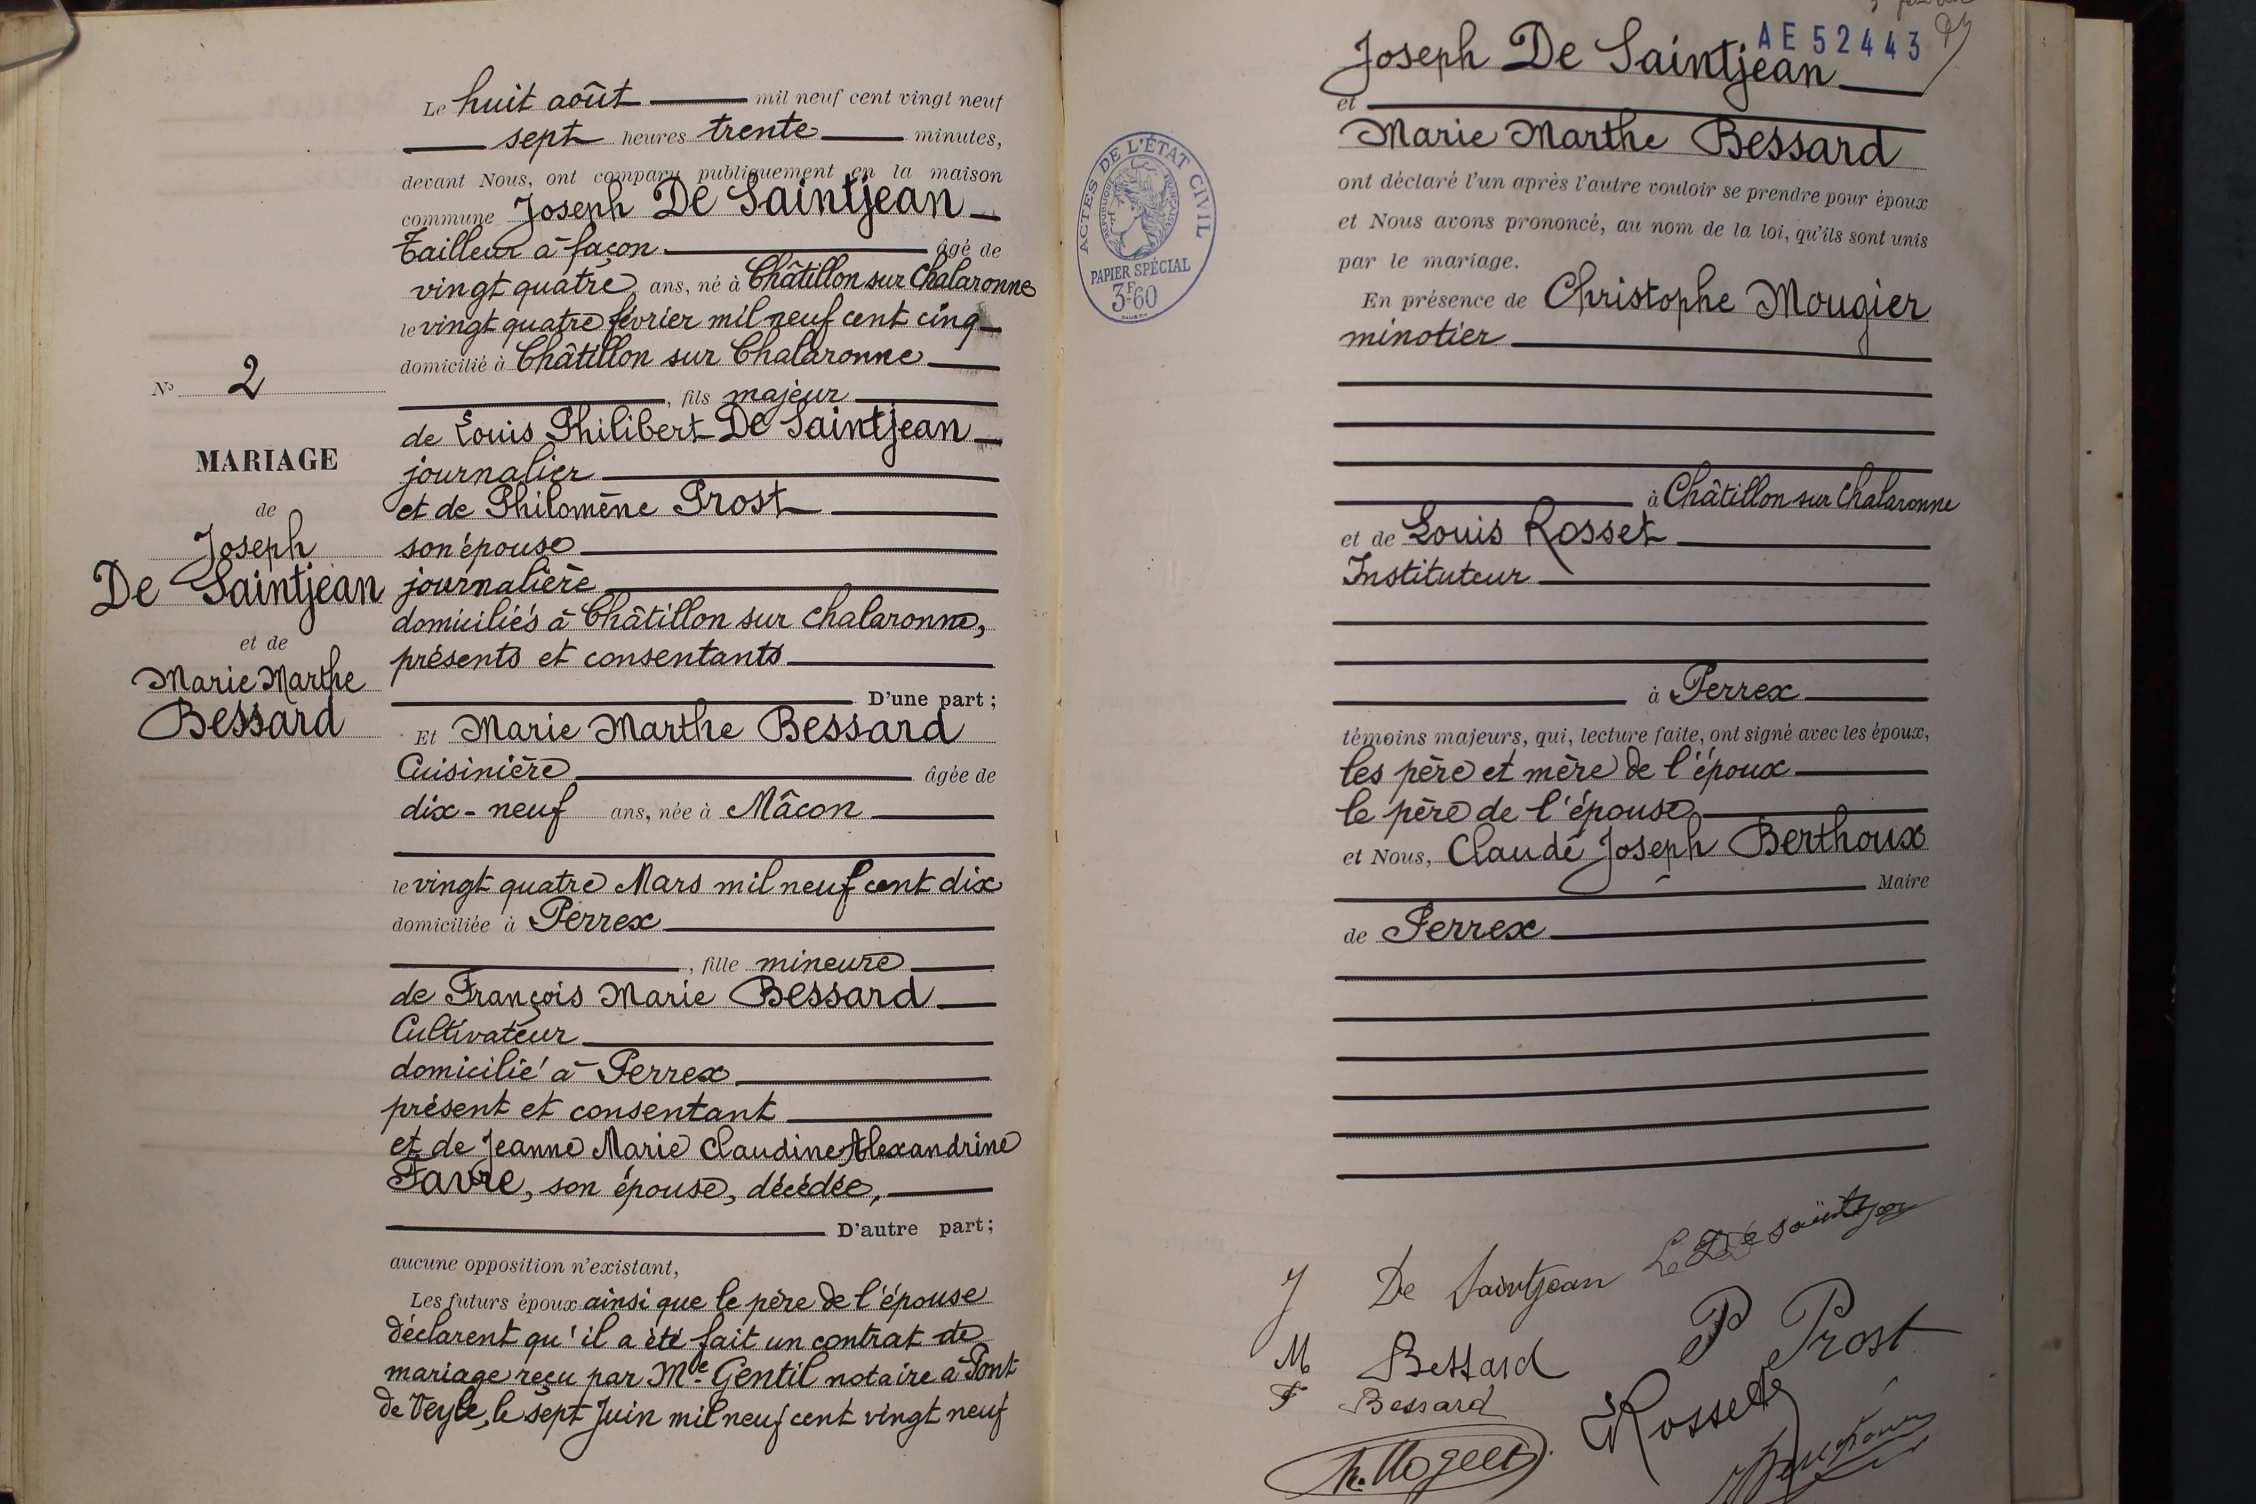 Le huit août mil neuf cent vingt neuf
sept heures trente minutes,
devant Nous, ont comparu publiquement en la maison
commune Joseph De Saintjean
tailleur à façon âgé de
vingt quatre ans, né à Châtillon sur Chalaronne
le vingt quatre février mil neuf cent cinq
domicilié à Châtillon sur Chalaronne
, fils majeur
de Louis Philibert De Saintjean
journalier
et de Philomène Prost
son épouse
journalière
domiciliés à Châtillon sur Chalaronne,
présents et consentants
D'une part ;
Et Marie Marthe Bessard
Cuisinière âgée de
dix-neuf ans, née à Mâcon
le vingt quatre Mars mil neuf cent dix
domiciliée à Perrex
, fille mineure
de François Marie Bessard
Cultivateur
domicilié à Perrex
présent et consentant
et de Jeanne Marie Claudine Alexandrine
Favre, son épouse, décédée,
D'autre part ;
aucune opposition n'existant,
Les futurs époux ainsi que le père de l'épouse
déclarent qu'il a été fait un contrat de
mariage reçu par Me Gentil notaire à Pont
de Veyle, le sept Juin mil neuf cent vingt neuf
No 2
MARIAGE
de
Joseph
De Saintjean
et de
Marie Marthe
Bessard
AE 52443
Joseph De Saintjean
et
Marie Marthe Bessard
ont déclaré l'un après l'autre vouloir se prendre pour époux
et Nous avons prononcé, au nom de la loi, qu'ils sont unis
par le mariage.
En présence de Christophe Mougier
minotier
à Châtillon sur Chalaronne
et de Louis Rosset
Instituteur
à Perrex
témoins majeurs, qui, lecture faite, ont signé avec les époux,
les père et mère de l'époux
le père de l'épouse
et Nous, Claude Joseph Berthoux
Maire
de Perrex
ACTES DE L'ÉTAT CIVIL
PAPIER SPÉCIAL
3F.60
J De Saintjean
M Bessard
P Prost
F Bessard
Rosset